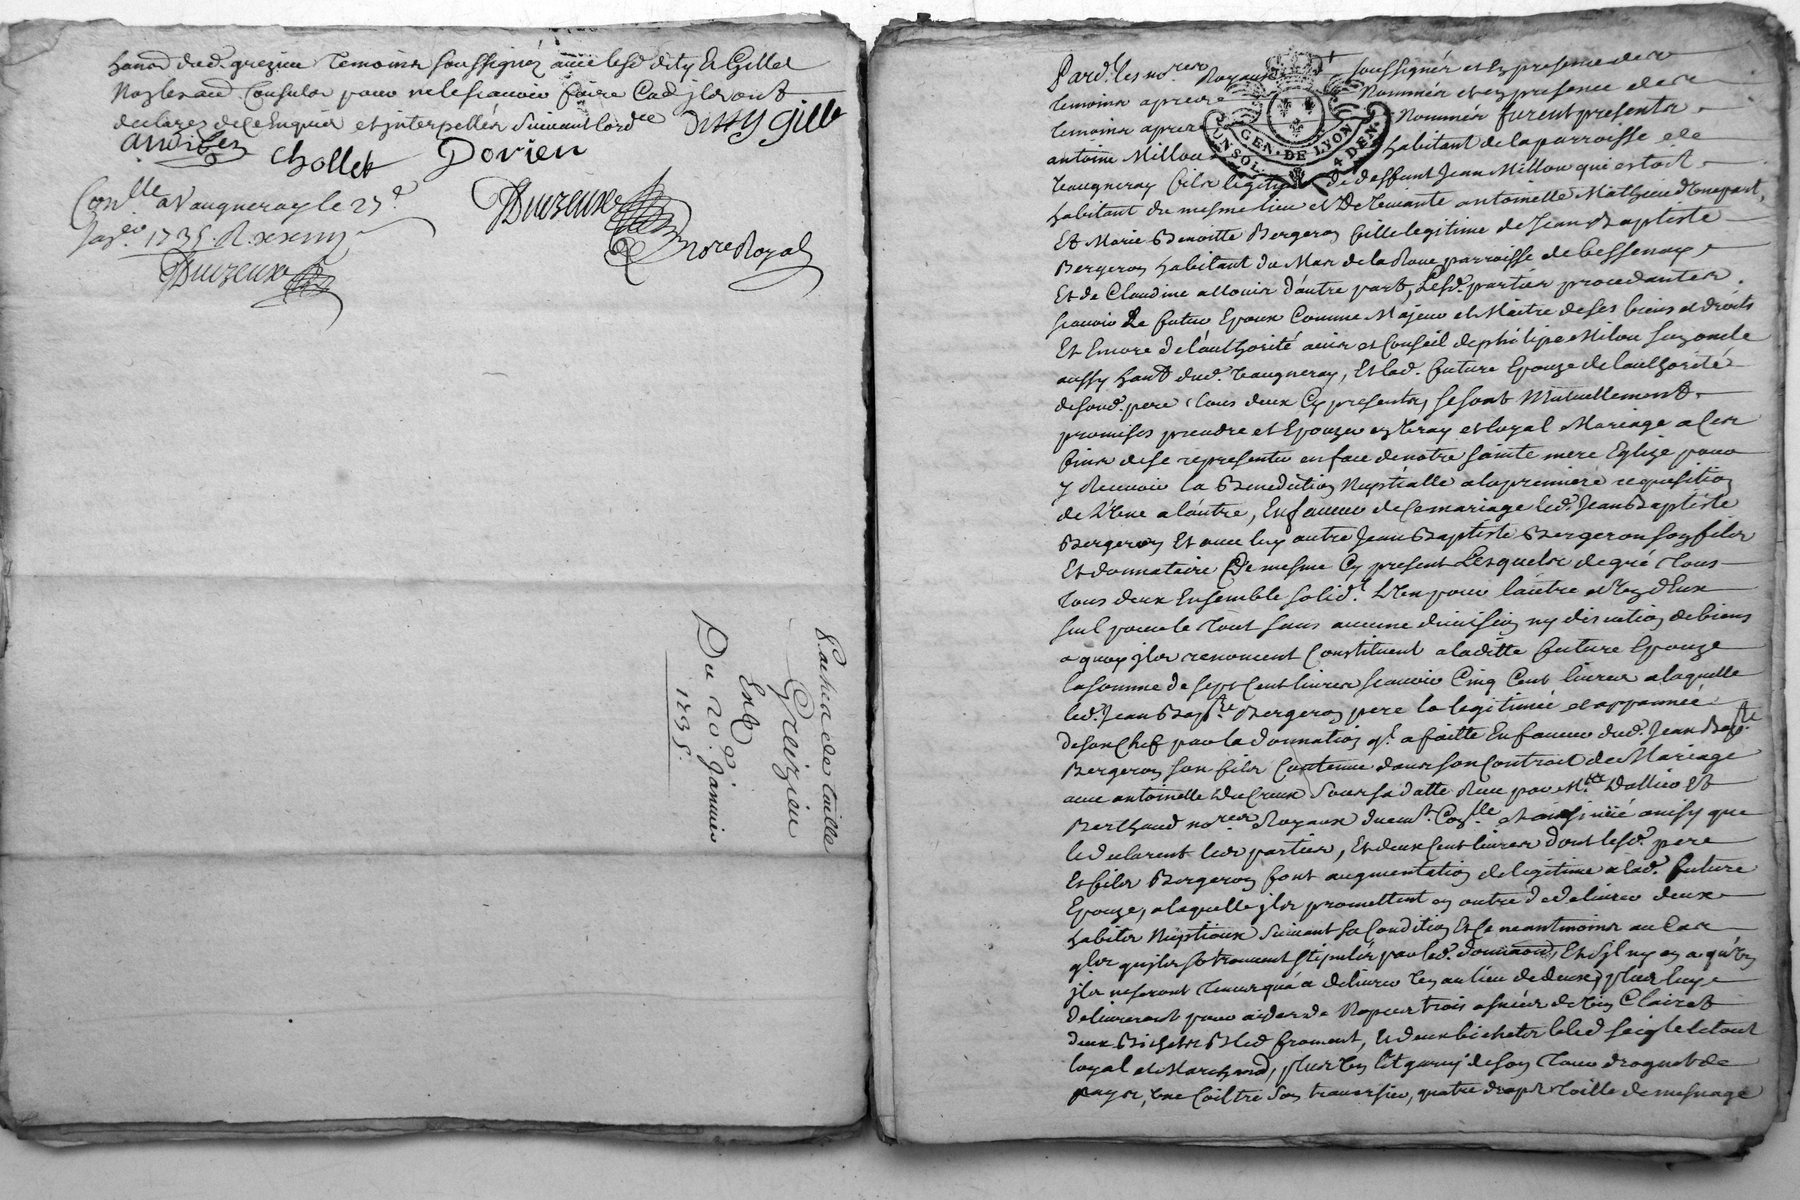 habnd dud. grezieu Temoins soussignez avec lesd dity et Gillet
pour ne le scavoir faire
declarez de ce Enquis et interpellés suivant lordce Dissy gille
Chollet Dorien
Conlle a Vaugneray le 23e
1735. R.
Duvzeux nore Royal
Duvzeux
Pache de taille
Greizieu
Entb
Du 20e Janvier
1735.
Pard. les nores Royaux soussignés et en presence des
temoins apres nommés et en presence des
temoins apres nommés furent presents
GEN. DE LYON
4 DEN
antoine Millou habitant de la parroisse de
Vaugneray fils legitime de deffunt Jean Millou qui estoit
habitant du mesme lieu et de vivante antoinette Mathieu d'une part,
Et Marie Benoitte Bergeron fille legitime de Jean Baptiste
Bergeron habitant du Mas de la Roue parroisse de bessenay
Et de Claudine allouis d'autre part, Lesd. parties procedantes
scavoir Le futur Epoux Comme Majeur et Maitre de ses biens et droits
Et Encore de l'authorité avis et Conseil de philipe Milou son oncle
aussy habnt dud. Vaugneray, Et lad. future Epouze de l'authorité
de sond. pere tous deux Cy presents, se sont Mutuellement
promises prendre et Epouzer en vray et loyal Mariage a ces
fins de se representer en face de notre sainte mere Eglize pour
y Recevoir la Benediction Nuptialle a la premiere requisition
de L'Une a l'autre, En faveur de Ce mariage led. Jean Baptiste
Bergeron Et avec luy autre Jean Baptiste Bergeron son fils
Et donnataire De mesme Cy present Lesquels de gré tous
tous deux Ensemble solidt. L'Un pour l'autre et Un d'Eux
seul pour le tout sans aucune division ny discution de biens
a quoy ils renoncent Constituent a laditte future Epouze
la somme de sept Cent livres scavoir Cinq Cent livres a laquelle
led. Jean Bapte Bergeron pere la legitimée et appannée
de son Chef par la donnation ql. a faitte En faveur dud. Jean Bapte
Bergeron son fils Contenue dans son Contract de Mariage
avec antoinette DuCreux sous sa datte Reçu par Mtre Dallier Et
Berthaud nores Royaux Conlle et insinüé ainsy que
le declarent lesd parties, Et deux Cent livres dont lesd. pere
Et fils Bergeron font augmentation de legitime a lad. future
Epouze, a laquelle ils promettent en outre de delivrer deux
habits Nuptiaux suivant sa Condition Et Ce neantmoins au Cas
qls quils se trouvent stipulés par led. donnaon, Et s'il ny en a qu'un
ils ne seront tenus qua delivrer un au lieu de deux, plus luy
delivreront pour aider de Nopces trois asnées de Vin Clairet
deux Bichets Bled froment, et deux bichets bled seigle le tout
loyal et Marchand, plus un lit garny de son tour droguet de
pays, une Coiltre son traversier, quatre draps Toille de mesnage